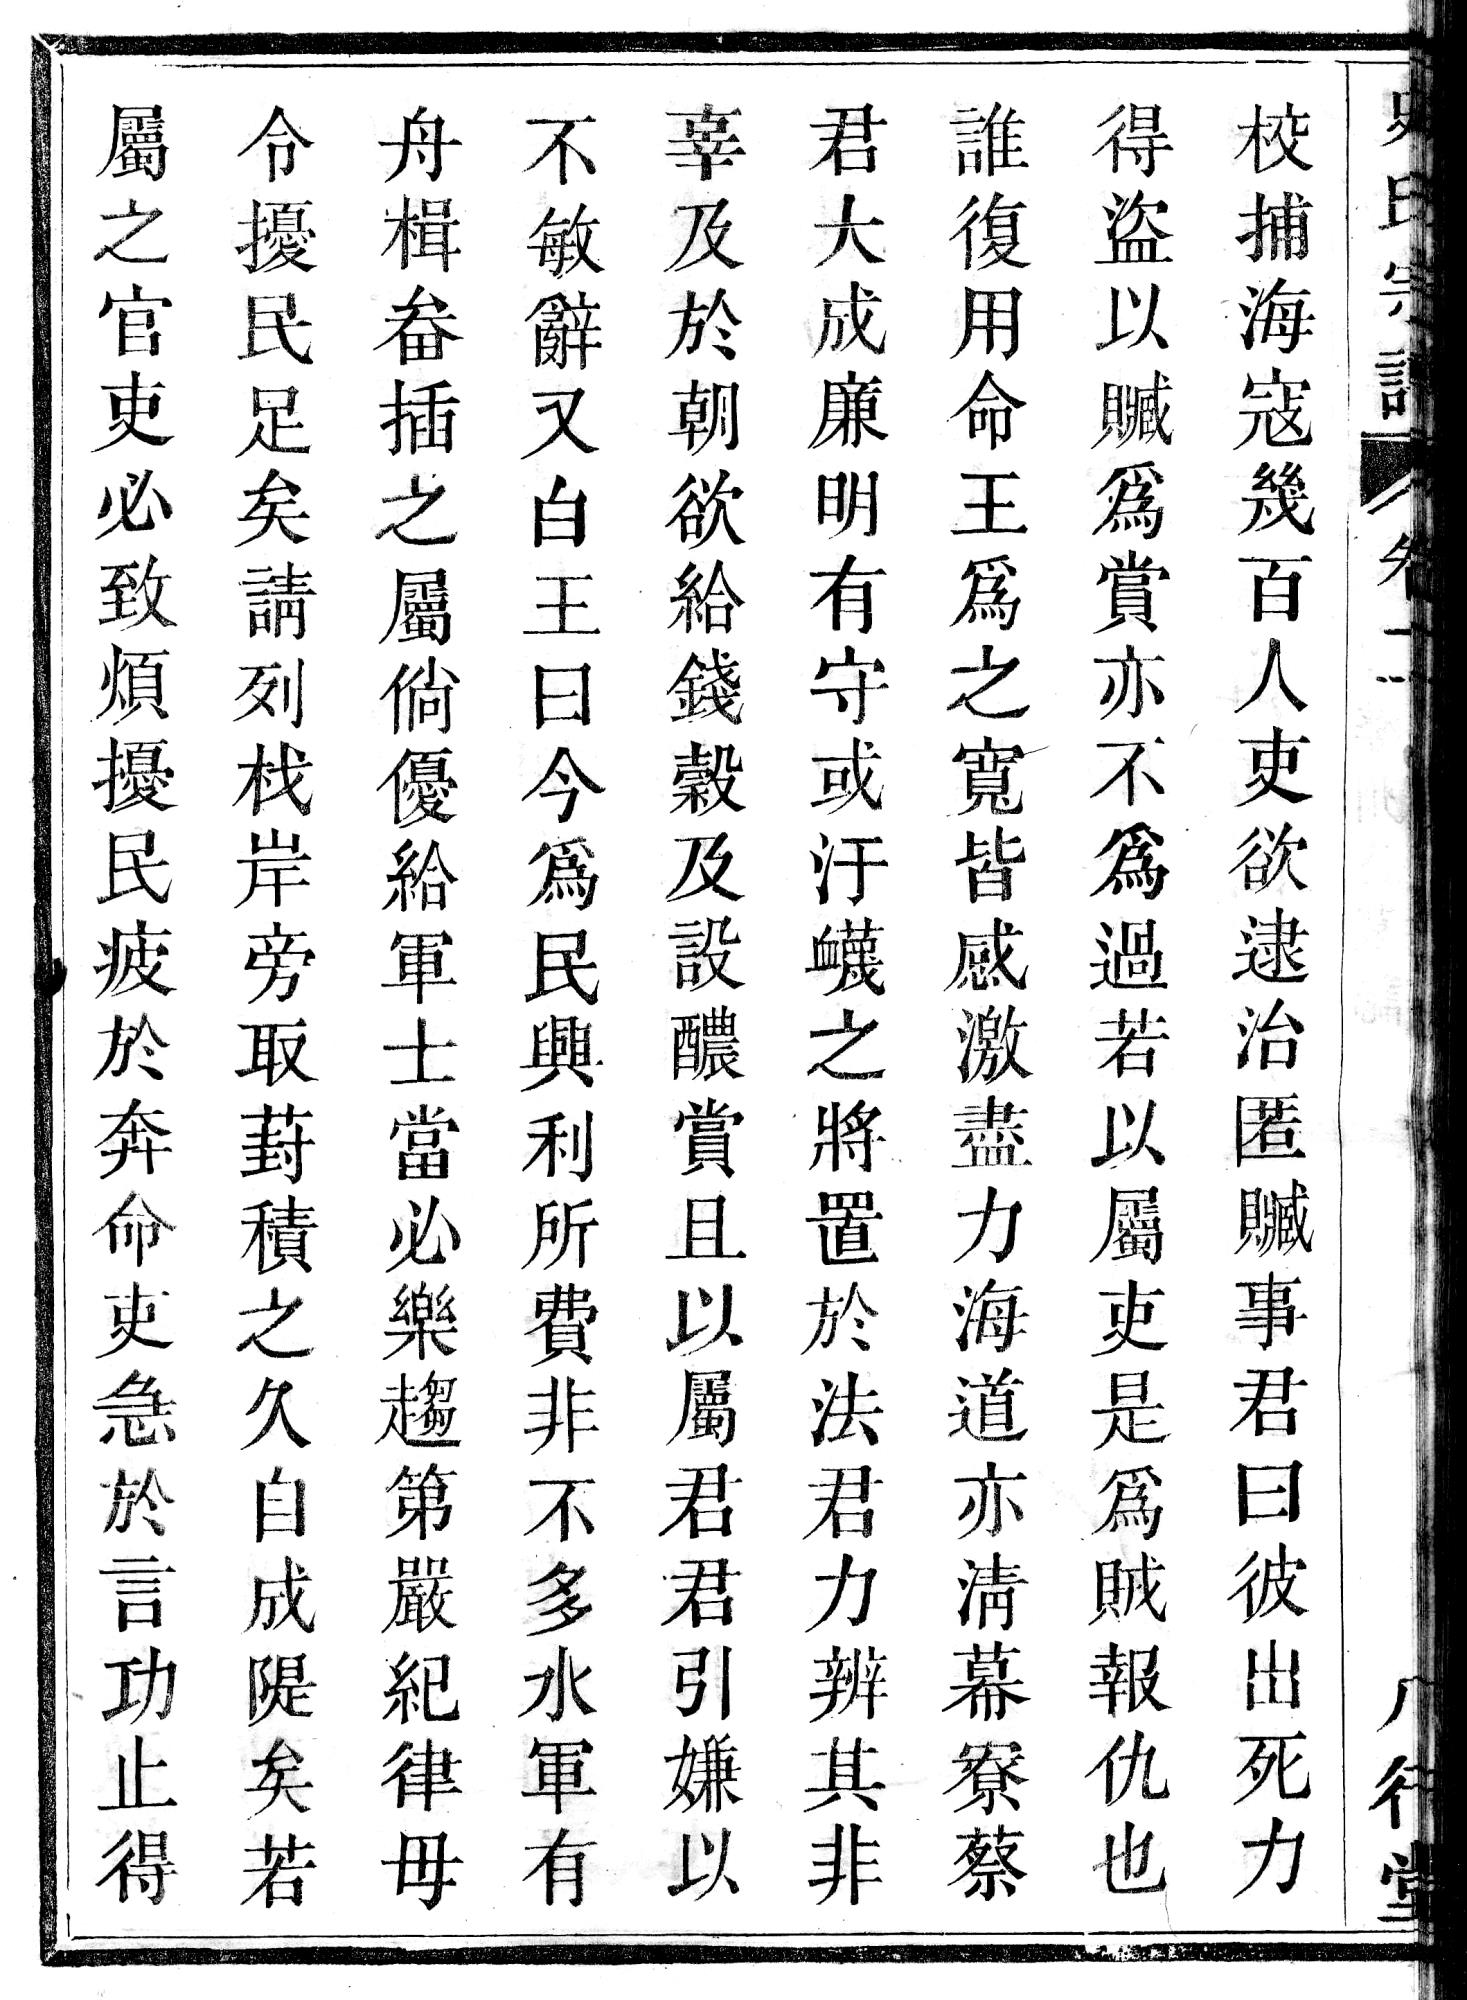 史氏宗譜 卷二 八行堂
校捕海寇幾百人吏欲逮治匿贓事君曰彼出死力
得盜以贓爲賞亦不爲過若以屬吏是爲賊報仇也
誰復用命王爲之寬皆感激盡力海道亦清幕寮蔡
君大成廉明有守或汙衊之將置於法君力辨其非
辜及於朝欲給錢穀及設醲賞且以屬君君引嫌以
不敏辭又白王曰今爲民興利所費非不多水軍有
舟楫畚插之屬倘優給軍士當必樂趨第嚴紀律毋
令擾民足矣請列栈岸旁取葑積之久自成隄矣若
屬之官吏必致煩擾民疲於奔命吏急於言功止得